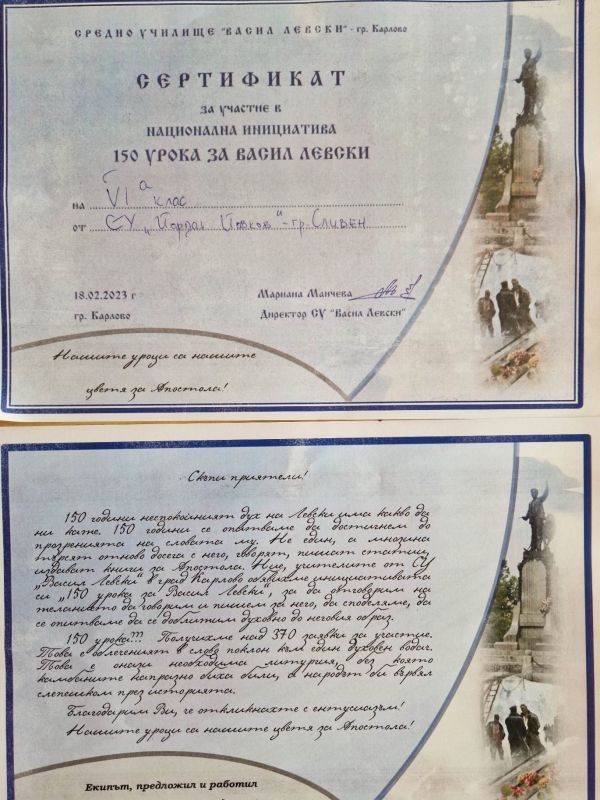 СРЕДНО УЧИЛИЩЕ "ВАСИЛ ЛЕВСКИ" - гр. Карлово
СЕРТИФИКАТ
ЗА УЧАСТИЕ В
НАЦИОНАЛНА ИНИЦИАТИВА
150 УРОКА ЗА ВАСИЛ ЛЕВСКИ
на VI а клас
от СУ „Йордан Йовков“ - гр. Сливен
18.02.2023 г
Мариана Манчева
гр. Карлово
Директор СУ "Васил Левски"
Нашите уроци са нашите
цветя за Апостола!
Скъпи приятели!
150 години неспокойният дух на Левски има какво да
ни каже. 150 години се опитваме да достигнем до
прозренията на словата му. Не един, а мнозина
търсят отново досега с него, говорят, пишат статии,
издават книги за Апостола. Ние, учителите от СУ
„Васил Левски“ в град Карлово обявихме инициативата
си „150 урока за Васил Левски“, за да отговорим на
желанието да говорим и пишем за него, да споделяме, да
се опитваме да се доближим духовно до неговия образ.
150 урока??? Получихме над 370 заявки за участие.
Това е облеченият в слово поклон към един духовен водач.
Това е онази необходима литургия, без която
камбаните напразно биха били, а народът би вървял
слепешком през историята.
Благодарим Ви, че откликнахте с ентусиазъм!
Нашите уроци са нашите цветя за Апостола!
Екипът, предложил и работил